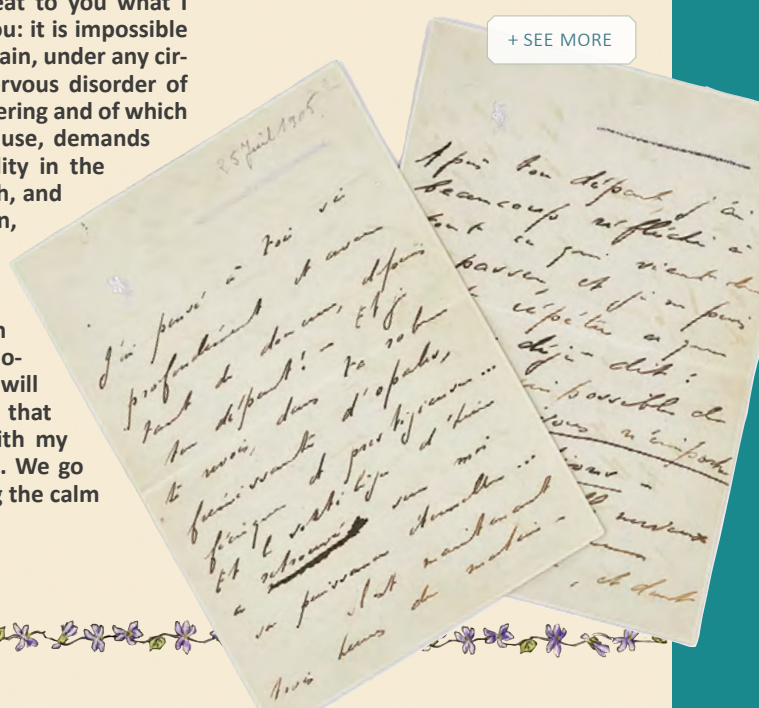 eat to you what I
ou: it is impossible
ain, under any cir-
rvous disorder of
ering and of which
use, demands
lity in the
h, and
n,
n
o-
will
that
ith my
. We go
g the calm
+ SEE MORE
25 Juil 1905
J'ai pensé à toi si
profondément et avec
tant de douceur, depuis
ton départ! – Et je
te revois, dans ta robe
frémissante d'opales,
féerique et prestigieuse...
Et le vertige d'hier
a retrouvé sur moi
sa puissance éternelle...
Il est maintenant
trois heures du matin –
Après ton départ, j'ai
beaucoup réfléchi à
tout ce qui vient de
passer, et je ne puis
répéter ce que
déjà dit:
impossible de
sous n'importe
nerveux
, et dont